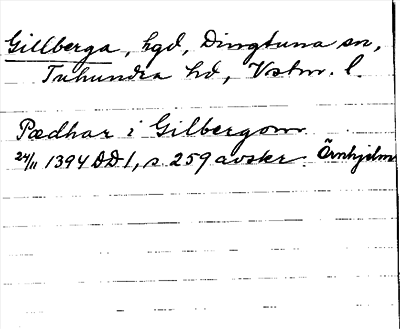 Gillberga, hgd, Dingtuna sn,
Tuhundra hd, Vstm. l.
Pædhar i Gilbergom
24/11 1394 DD1, s. 259 avskr. Örnhjelm